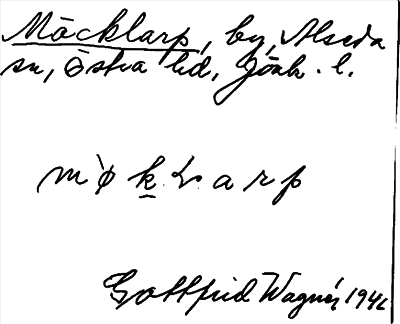 Möcklarp, by, Alseda
sn, Östra hd, Jönk. l.
Gottfrid Wagnér 194